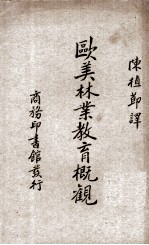 陳植節譯
歐美林業教育概觀
商務印書館發行